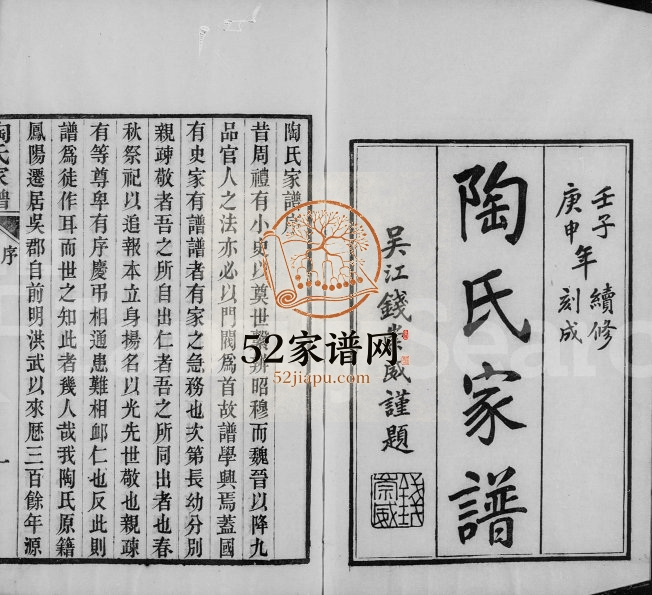 壬子續修
庚申年刻成
陶氏家譜
吳江錢崇威謹題
錢崇威
陶氏家譜序
昔周禮有小史以奠世繫辨昭穆而魏晉以降九
品官人之法亦必以門閥爲首故譜學興焉蓋國
有史家有譜譜者有家之急務也次第長幼分別
親疎敬者吾之所自出仁者吾之所同出者也春
秋祭祀以追報本立身揚名以光先世敬也親疎
有等尊卑有序慶弔相通患難相卹仁也反此則
譜爲徒作耳而世之知此者幾人哉我陶氏原籍
鳳陽遷居吳郡自前明洪武以來歷三百餘年源
陶氏家譜
序
一
52家谱网
52jiapu.com